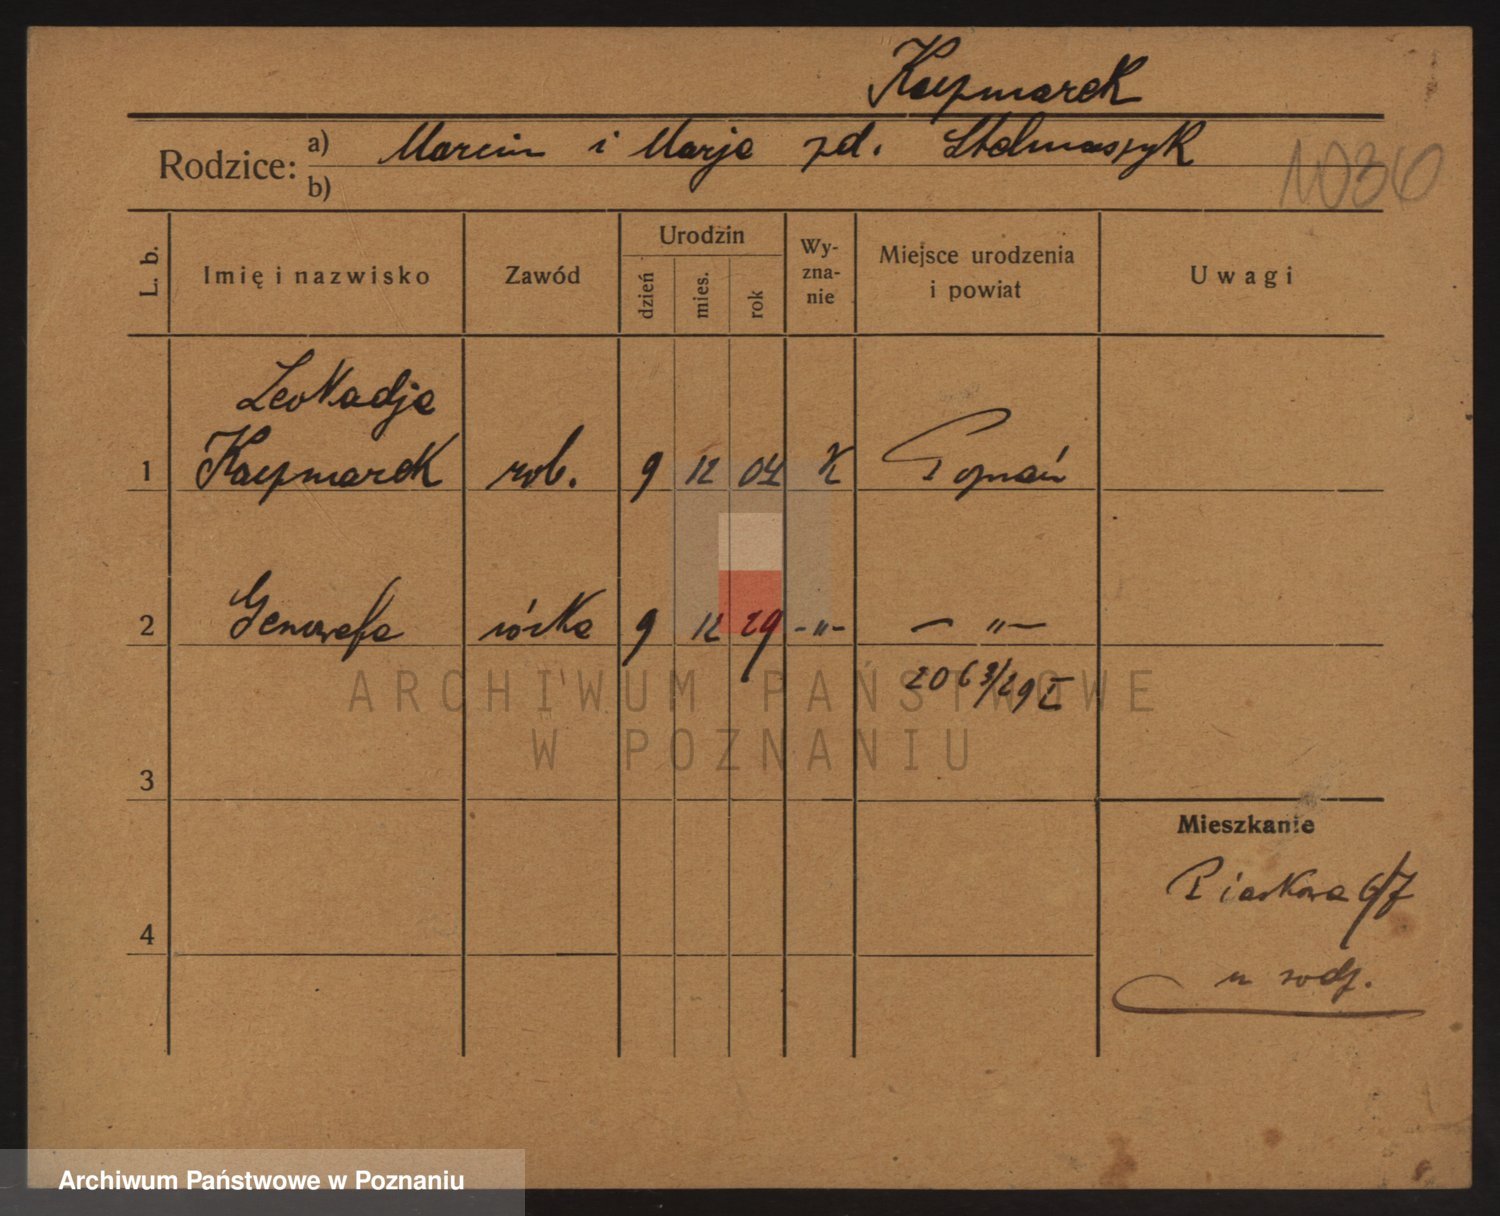 Kaczmarek
Rodzice: a) Marcin i Marja zd. Stelmaszyk
b)
1030
L. b.
Imię i nazwisko
Zawód
Urodzin
dzień
mies.
rok
Wy-
zna-
nie
Miejsce urodzenia
i powiat
Uwagi
Leokadja
1 Kaczmarek rob. 9 12 04 K Poznań
2 Genowefa córka 9 12 29 -"- -"-
2063/29 I
ARCHIWUM PAŃSTWOWE
W POZNANIU
3
Mieszkanie
Piaskowa 6/7
4
u rodz.
Archiwum Państwowe w Poznaniu